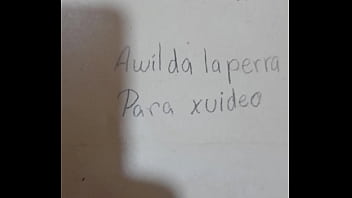 Awilda laperra
Para xuideo